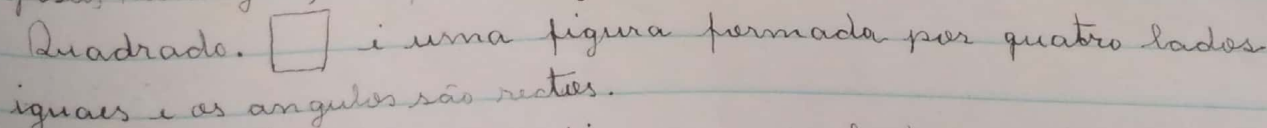 Quadrado. é uma figura formada por quatro lados
iguaes e os angulos são rectos.